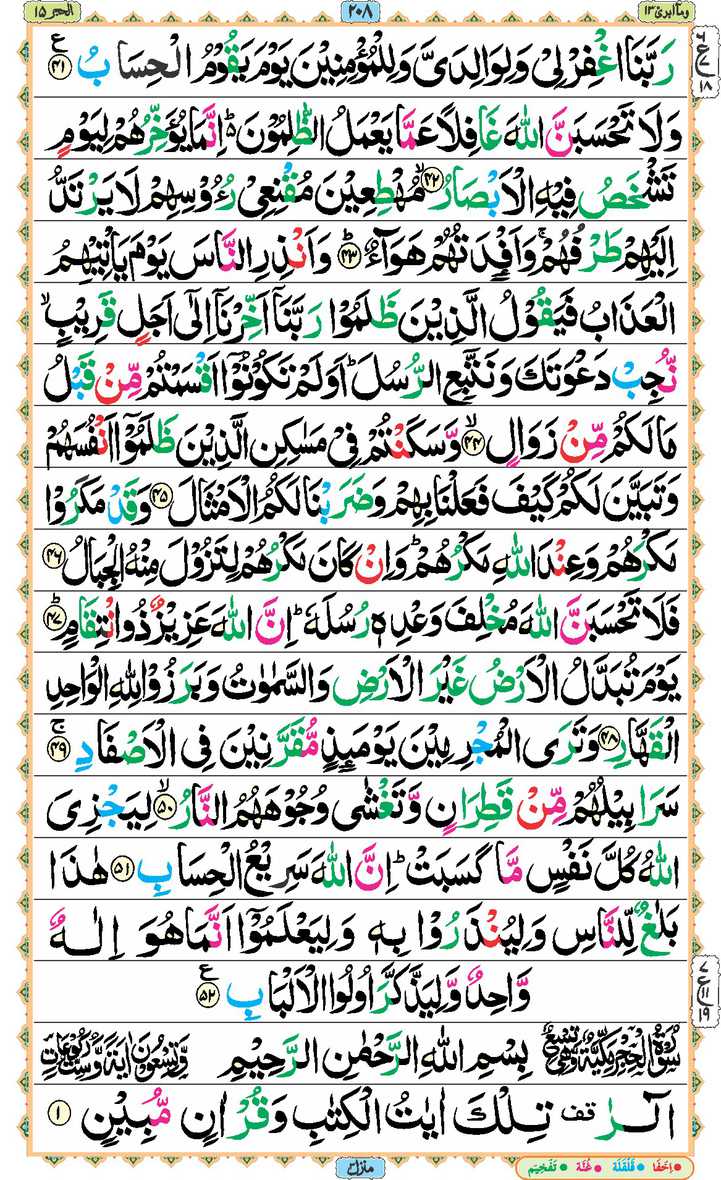 وما ابرئ ١٣
٢٠٨
الحجر ١٥
رَبَّنَا اغْفِرْ لِیْ وَلِوَالِدَیَّ وَلِلْمُؤْمِنِیْنَ یَوْمَ یَقُوْمُ الْحِسَابُ ۴۱ ع
وَلَا تَحْسَبَنَّ اللّٰهَ غَافِلًا عَمَّا یَعْمَلُ الظّٰلِمُوْنَ ؕ اِنَّمَا یُؤَخِّرُهُمْ لِیَوْمٍ
تَشْخَصُ فِیْهِ الْاَبْصَارُ ۙ۴۲ مُهْطِعِیْنَ مُقْنِعِیْ رُءُوْسِهِمْ لَا یَرْتَدُّ
اِلَیْهِمْ طَرْفُهُمْ ۚ وَاَفْـِٕدَتُهُمْ هَوَآءٌ ؕ۴۳ وَاَنْذِرِ النَّاسَ یَوْمَ یَاْتِیْهِمُ
الْعَذَابُ فَیَقُوْلُ الَّذِیْنَ ظَلَمُوْا رَبَّنَاۤ اَخِّرْنَاۤ اِلٰۤی اَجَلٍ قَرِیْبٍ ۙ
نُّجِبْ دَعْوَتَكَ وَنَتَّبِعِ الرُّسُلَ ؕ اَوَلَمْ تَكُوْنُوْۤا اَقْسَمْتُمْ مِّنْ قَبْلُ
مَا لَكُمْ مِّنْ زَوَالٍ ۙ۴۴ وَّسَكَنْتُمْ فِیْ مَسٰكِنِ الَّذِیْنَ ظَلَمُوْۤا اَنْفُسَهُمْ
وَتَبَیَّنَ لَكُمْ كَیْفَ فَعَلْنَا بِهِمْ وَضَرَبْنَا لَكُمُ الْاَمْثَالَ ۴۵ وَقَدْ مَكَرُوْا
مَكْرَهُمْ وَعِنْدَ اللّٰهِ مَكْرُهُمْ ؕ وَاِنْ كَانَ مَكْرُهُمْ لِتَزُوْلَ مِنْهُ الْجِبَالُ ۴۶
فَلَا تَحْسَبَنَّ اللّٰهَ مُخْلِفَ وَعْدِهٖ رُسُلَهٗ ؕ اِنَّ اللّٰهَ عَزِیْزٌ ذُو انْتِقَامٍ ؕ۴۷
یَوْمَ تُبَدَّلُ الْاَرْضُ غَیْرَ الْاَرْضِ وَالسَّمٰوٰتُ وَبَرَزُوْا لِلّٰهِ الْوَاحِدِ
الْقَهَّارِ ۴۸ وَتَرَی الْمُجْرِمِیْنَ یَوْمَىِٕذٍ مُّقَرَّنِیْنَ فِی الْاَصْفَادِ ۚ۴۹
سَرَابِیْلُهُمْ مِّنْ قَطِرَانٍ وَّتَغْشٰی وُجُوْهَهُمُ النَّارُ ۙ۵۰ لِیَجْزِیَ
اللّٰهُ كُلَّ نَفْسٍ مَّا كَسَبَتْ ؕ اِنَّ اللّٰهَ سَرِیْعُ الْحِسَابِ ۵۱ هٰذَا
بَلٰغٌ لِّلنَّاسِ وَلِیُنْذَرُوْا بِهٖ وَلِیَعْلَمُوْۤا اَنَّمَا هُوَ اِلٰهٌ
وَّاحِدٌ وَّلِیَذَّكَّرَ اُولُوا الْاَلْبَابِ ۵۲ ع
سُوْرَةُ الْحِجْرِ مَكِّیَّةٌ وَّهِیَ تِسْعٌ بِسْمِ اللّٰهِ الرَّحْمٰنِ الرَّحِیْمِ وَّتِسْعُوْنَ اٰیَةً وَّسِتُّ رُكُوْعَاتٍ
الٓرٰ قف تِلْكَ اٰیٰتُ الْكِتٰبِ وَقُرْاٰنٍ مُّبِیْنٍ ۱
ع ٦ ٧ ١٨
ع ٧ ١١ ١٩
منزل ٣
اِخفَا • قَلْقَلَة • غُنَّة • تَفْخِیْم